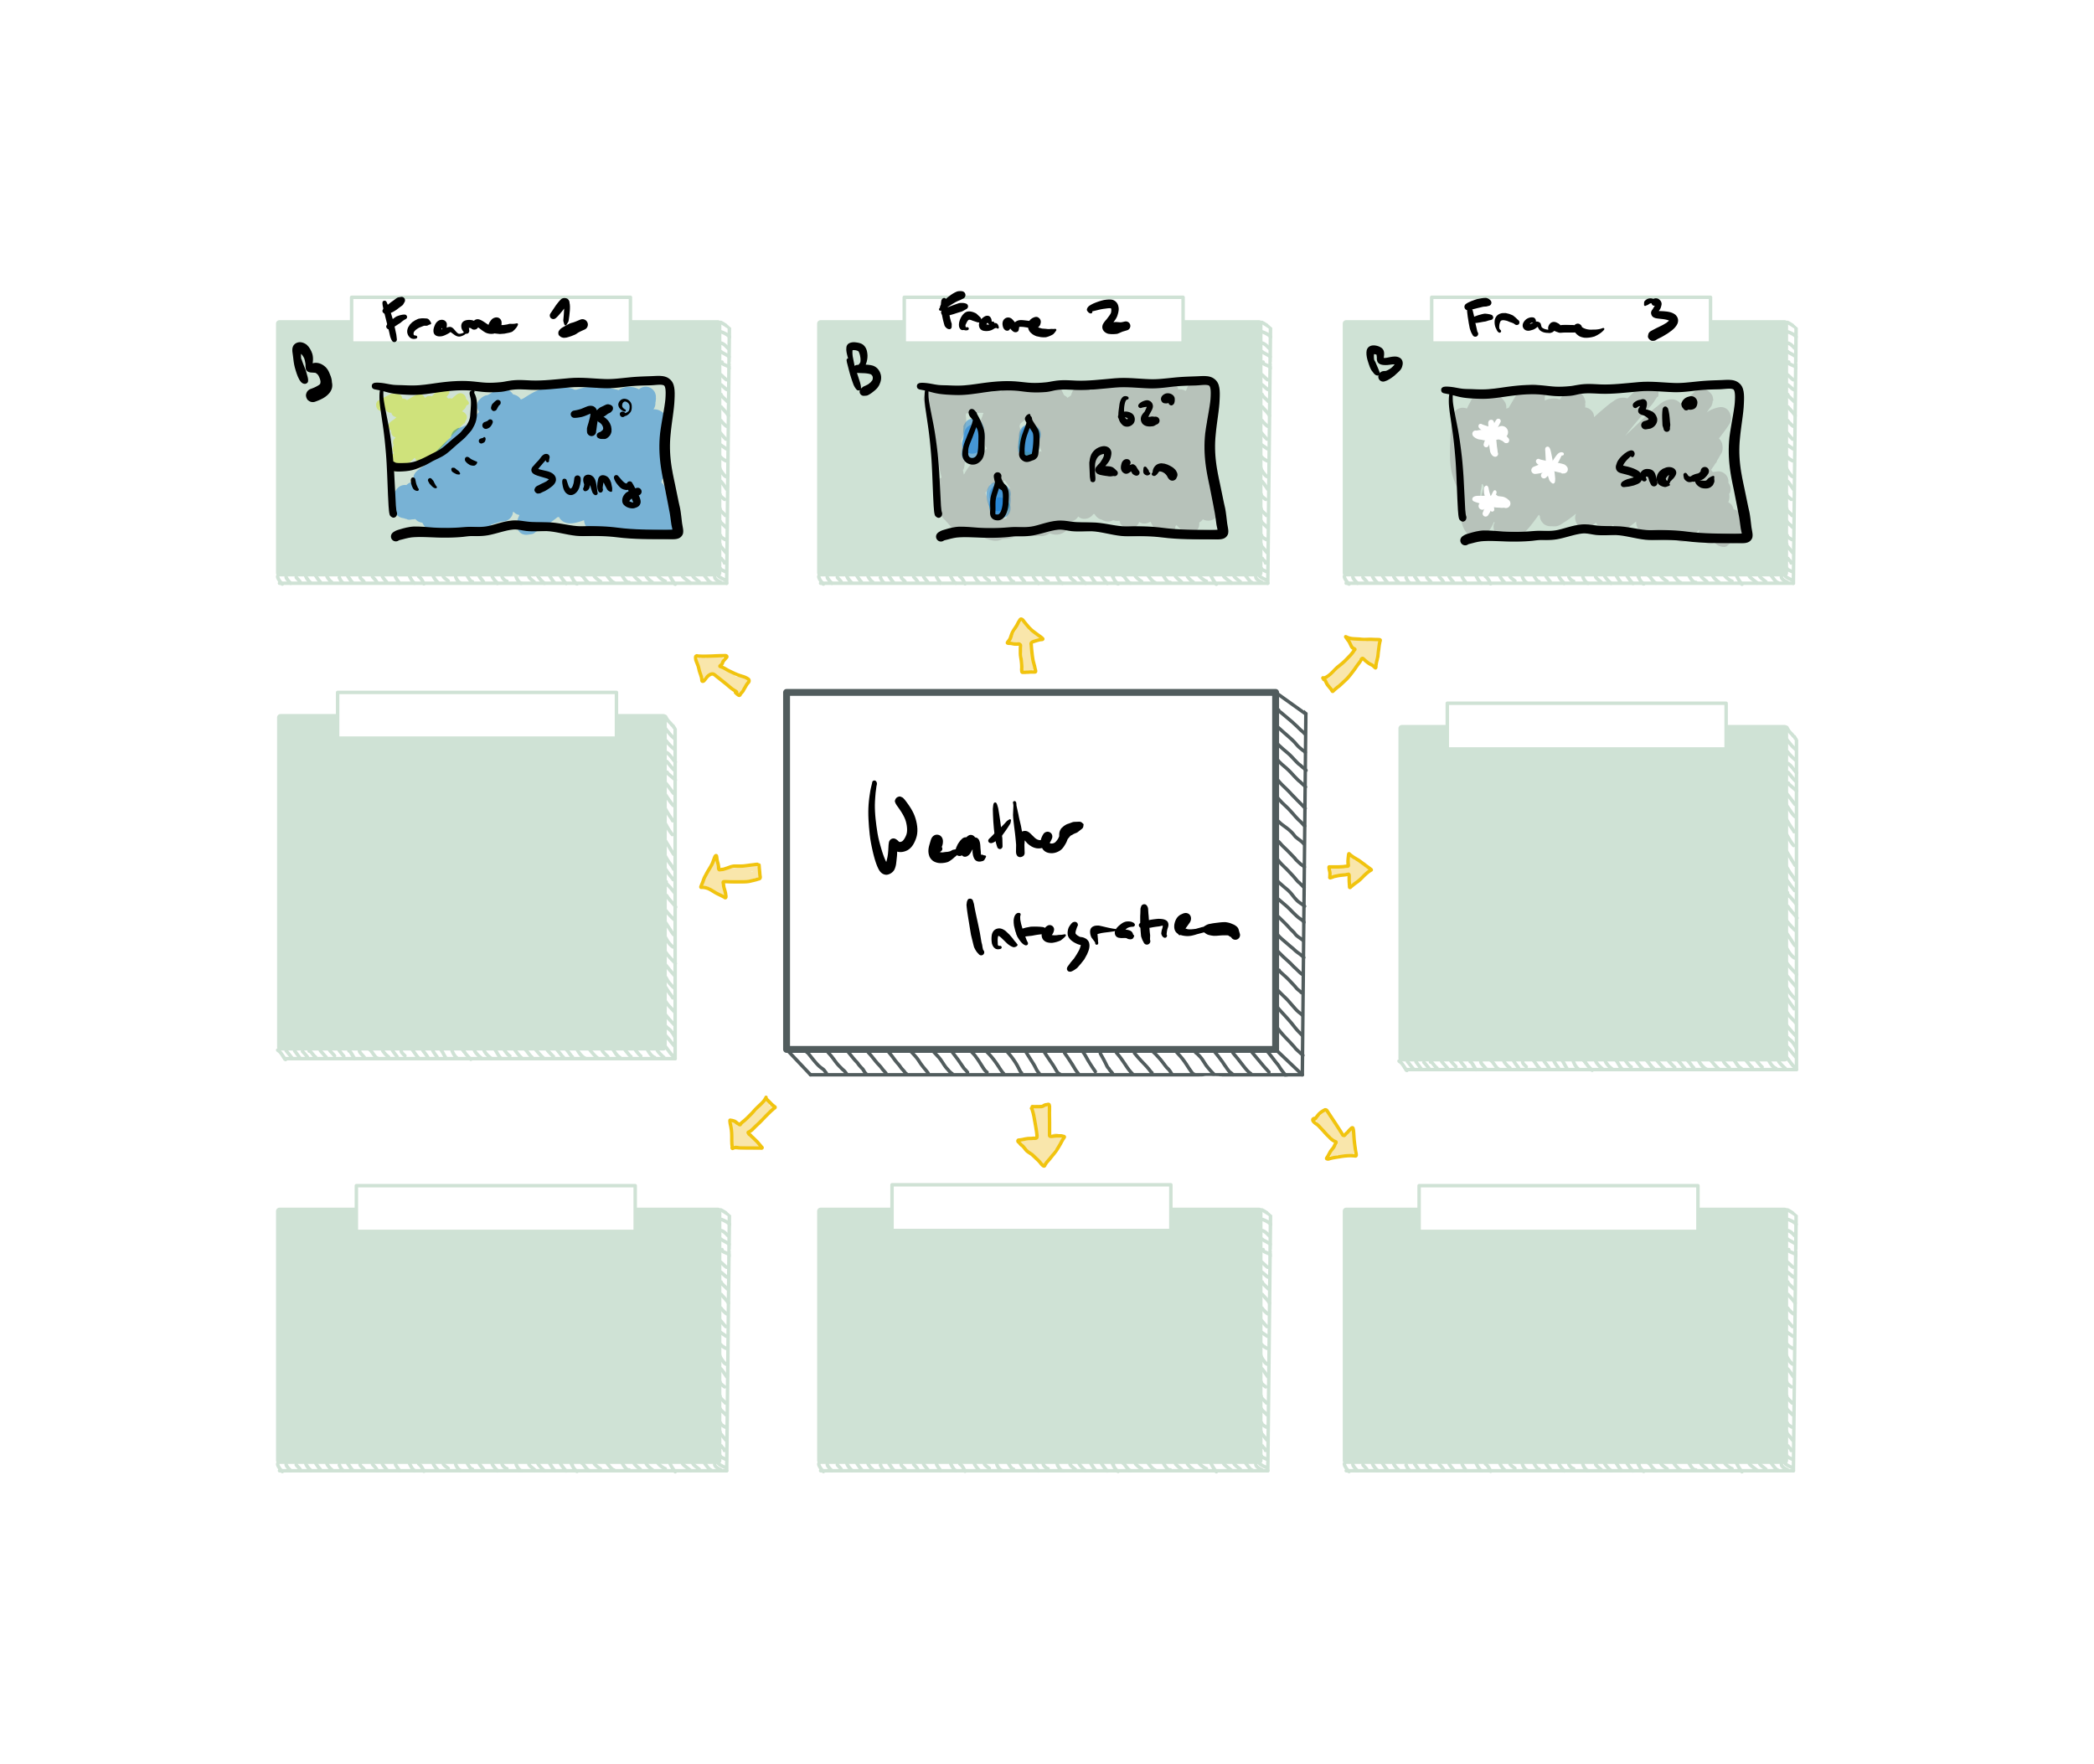 Frame 1
B
78°
Sunny
Frame 2
B
65°
Rainy
Frame 3
B
31°
Snow
Weather
Integration